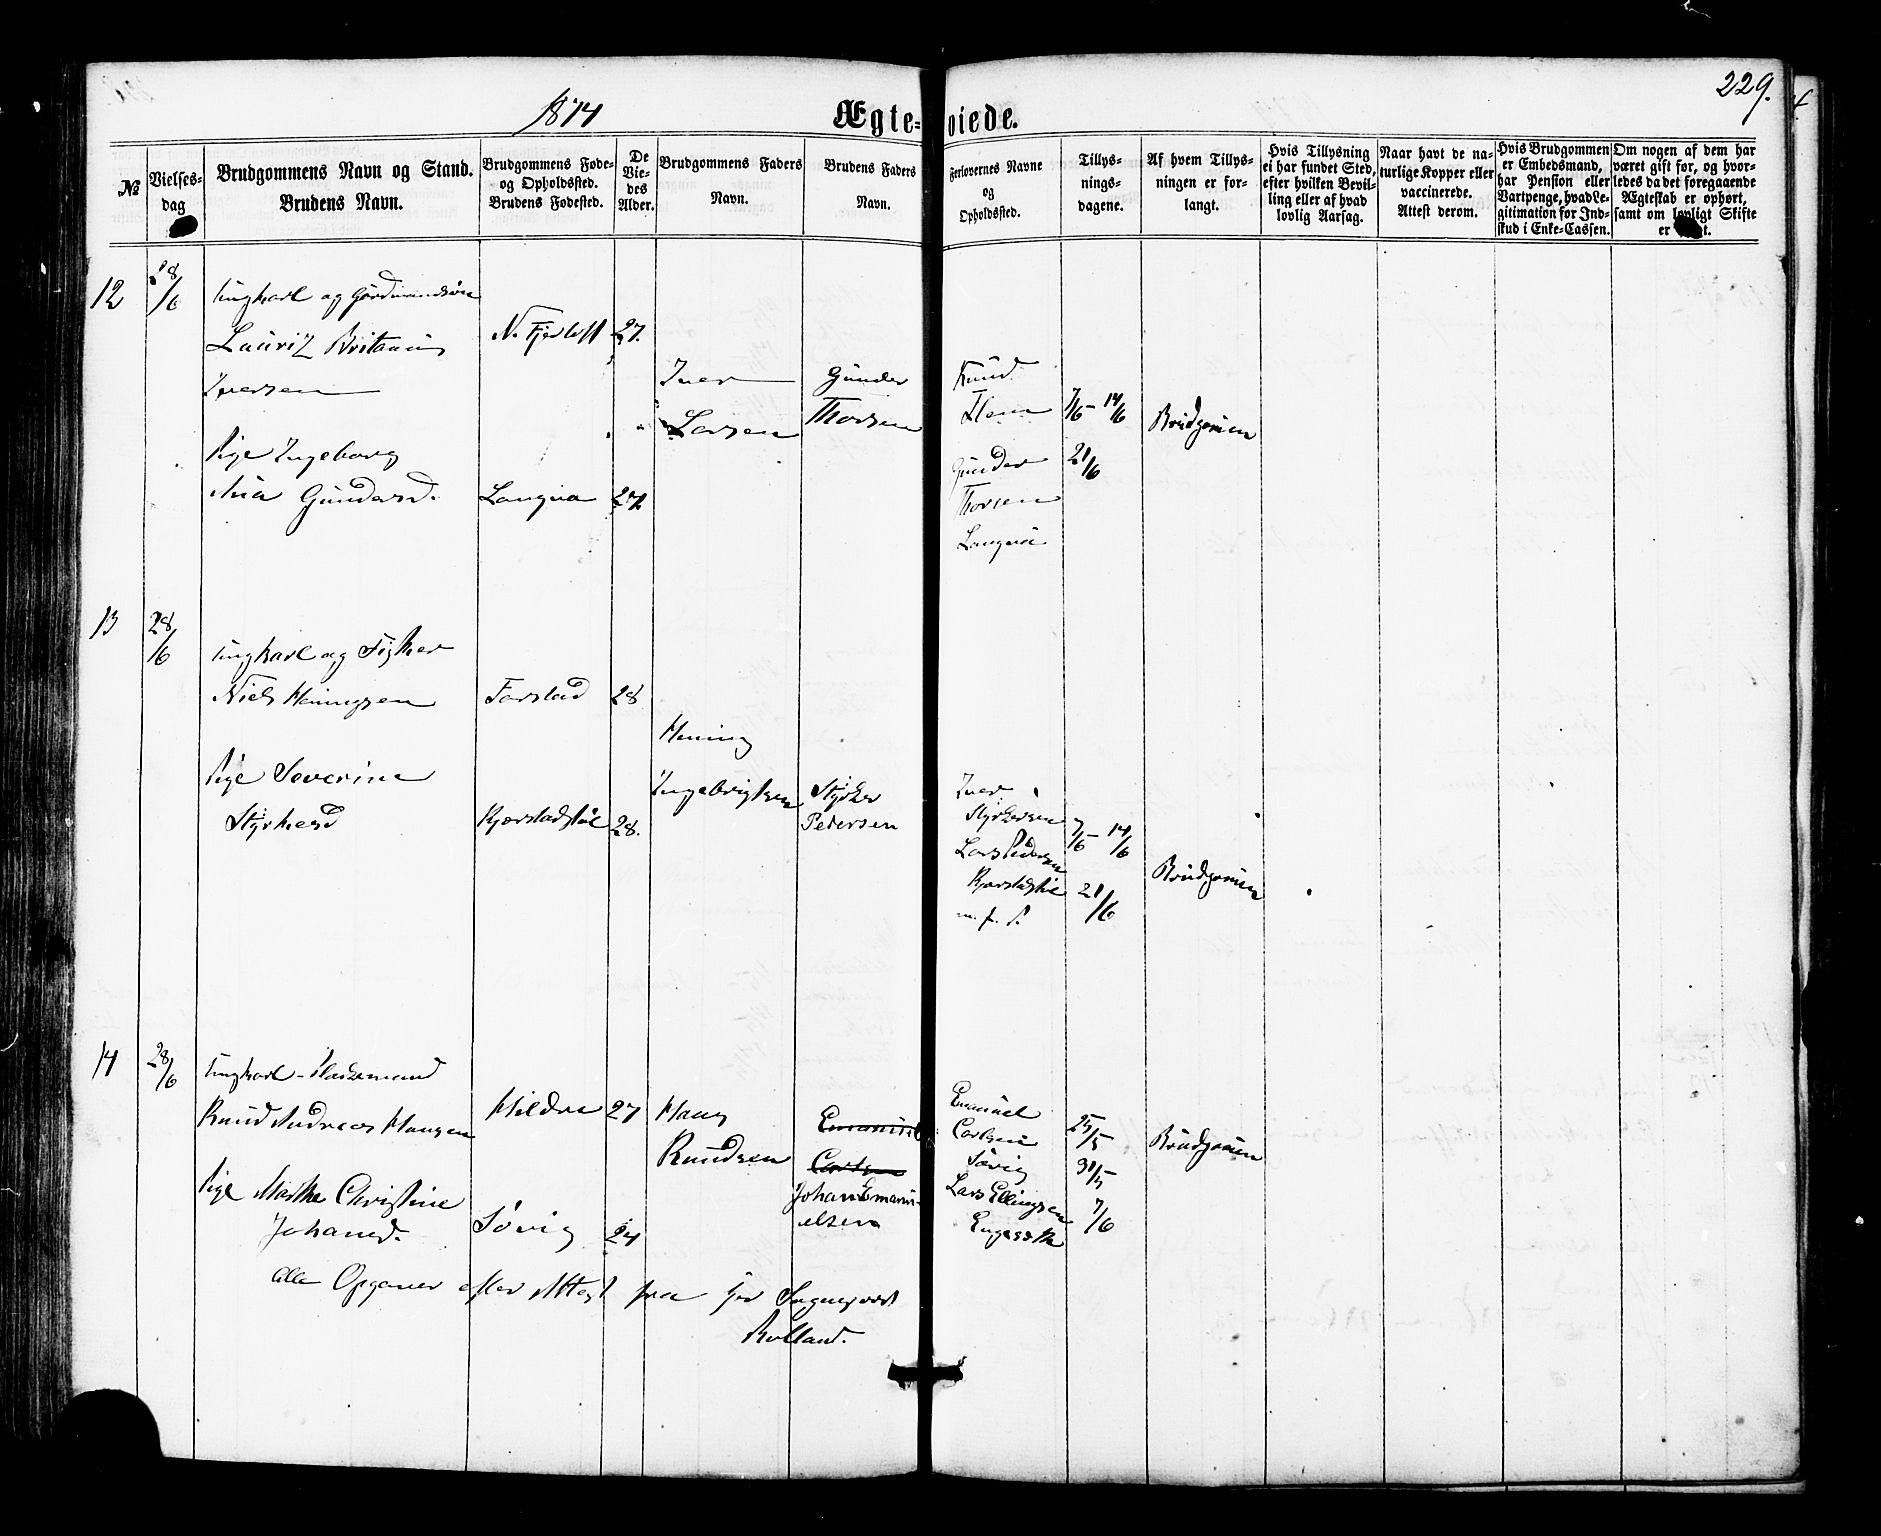 229.
1874
Ægte-viede.
№
Vielses-dag
Brudgommens Navn og Stand.
Brudens Navn.
Brudgommens Føde- og Opholdssted.
Brudens Fødested.
De Vie-des Alder.
Brudgommens Faders Navn.
Brudens Faders Navn.
Forlovernes Navne og Opholdssted.
Tillys-nings-dagene.
Af hvem Tillys-ningen er for-langt.
Hvis Tillysning ei har fundet Sted, efter hvilken Bevil-ling eller af hvad lovlig Aarsag.
Naar havt de na-turlige Kopper eller vaccinerede. Attest derom.
Hvis Brudgommen er Embedsmand, har Pension eller Vartpenge, hvad Le-gitimation for Ind-skud i Enke-Cassen.
Om nogen af dem har været gift før, og hvor-ledes da det foregaaende Ægteskab er ophørt, samt om lovligt Skifte er
12
28/6
Ungkarl og Gaardmandssøn
Lauritz Britanus
Iversen
N. Fjertoft
27.
Iver
Larsen
Gunder
Thorsen
Knud
7/6 - 14/6
21/6
Brudgomen
Pige Ingeborg
Ana Gundersd.
Longva
27.
Gunder
Thorsen
Longva
13
28/6
Ungkarl og Fisker
Niels Heningsen
Farstad
28
Hening
Ingebrigtsen
Styrker
Pedersen
Iver
Styrkersen
Lars Pedersen
Kjerstadstøl
m. f. P.
7/6 - 14/6
21/6
Brudgomen
Pige Severine
Styrkesd
Kjerstadstøl
28.
14
28/6
Ungkarl - Pladsmand
Knud Andreas Hansen
Hildre
27
Hans
Knudsen
Emanuel
Carlsen
Johan Emanu-
elsen
Emanuel
Carlsen
Søvig
Lars Ellingsen
Engeseth
25/5
31/5
7/6
Brudgomen
Pige Marthe Christine
Johansd.
Søvig
24
Alle Opgaver efter Attest fra Hr Sogneprest
Rolland.